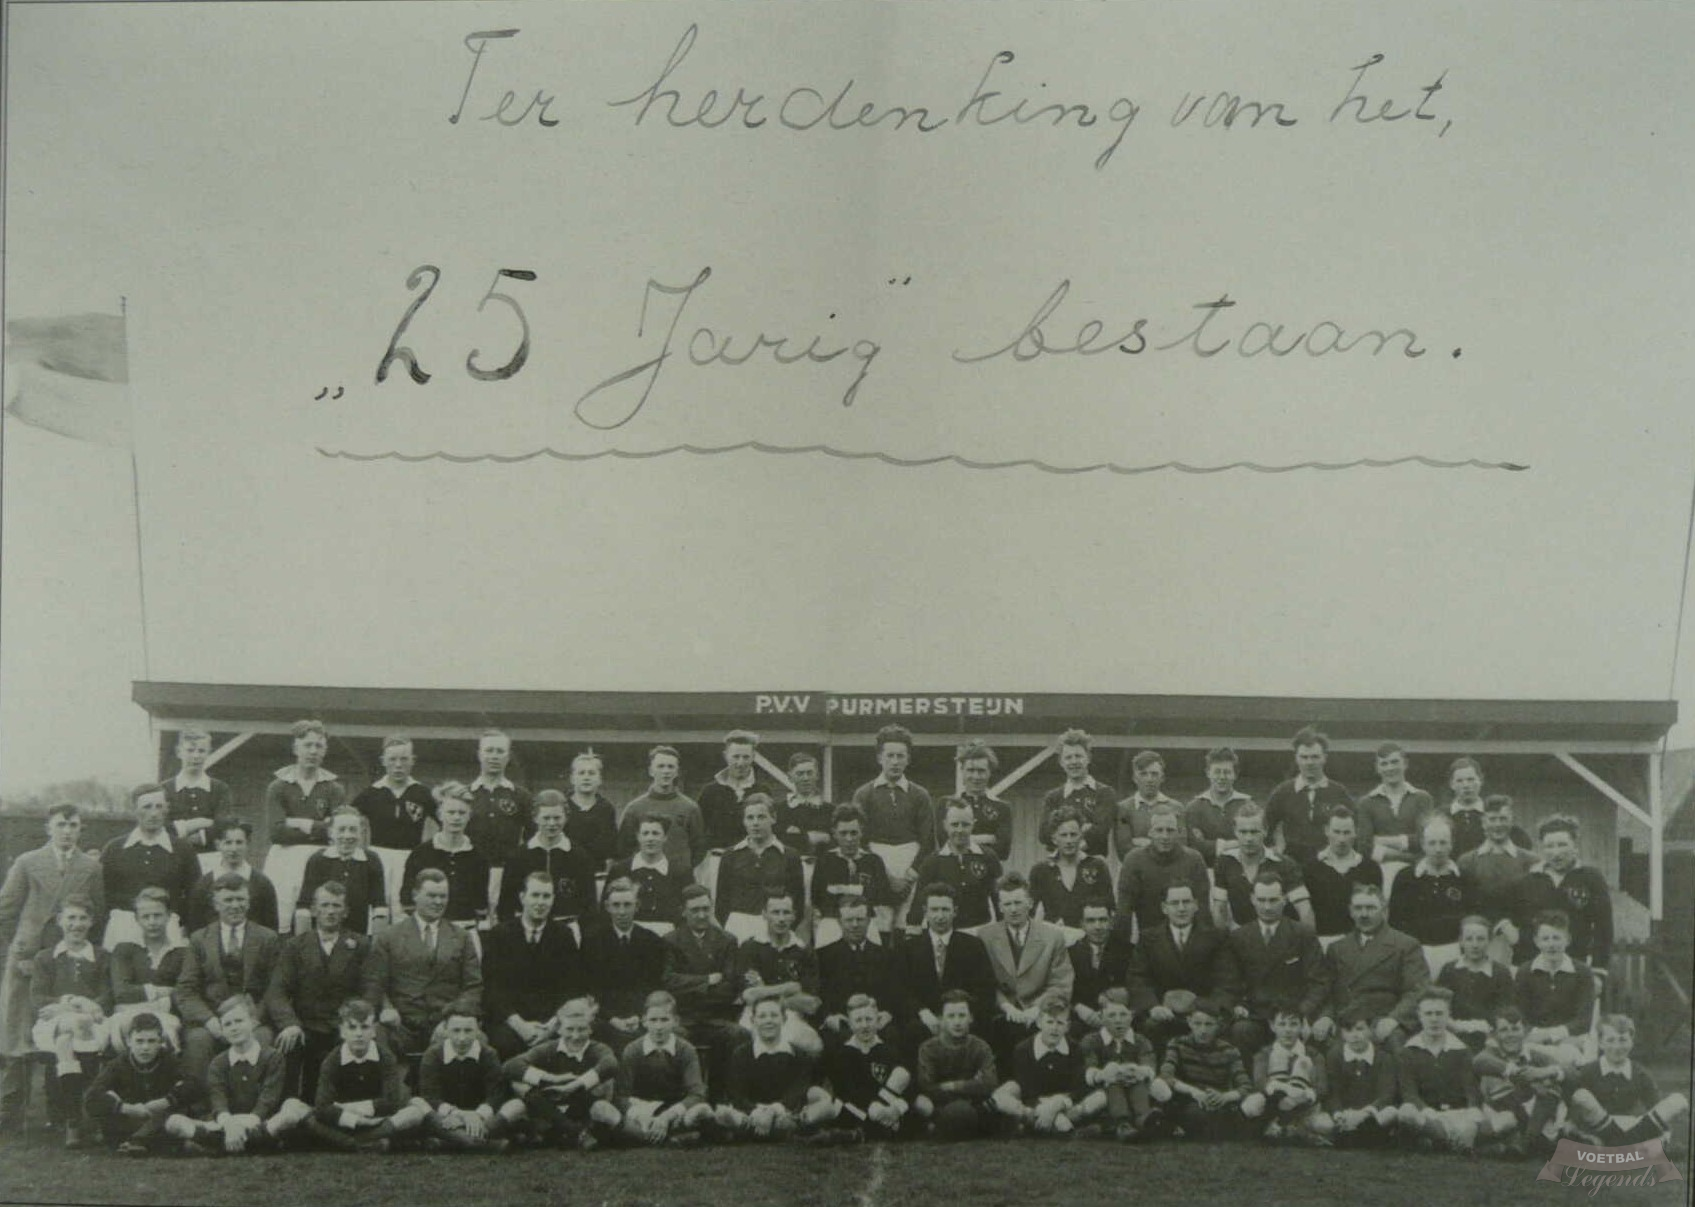 Ter herdenking van het,
„25 Jarig” bestaan.
P.V.V PURMERSTEIJN
VOETBAL
Legends